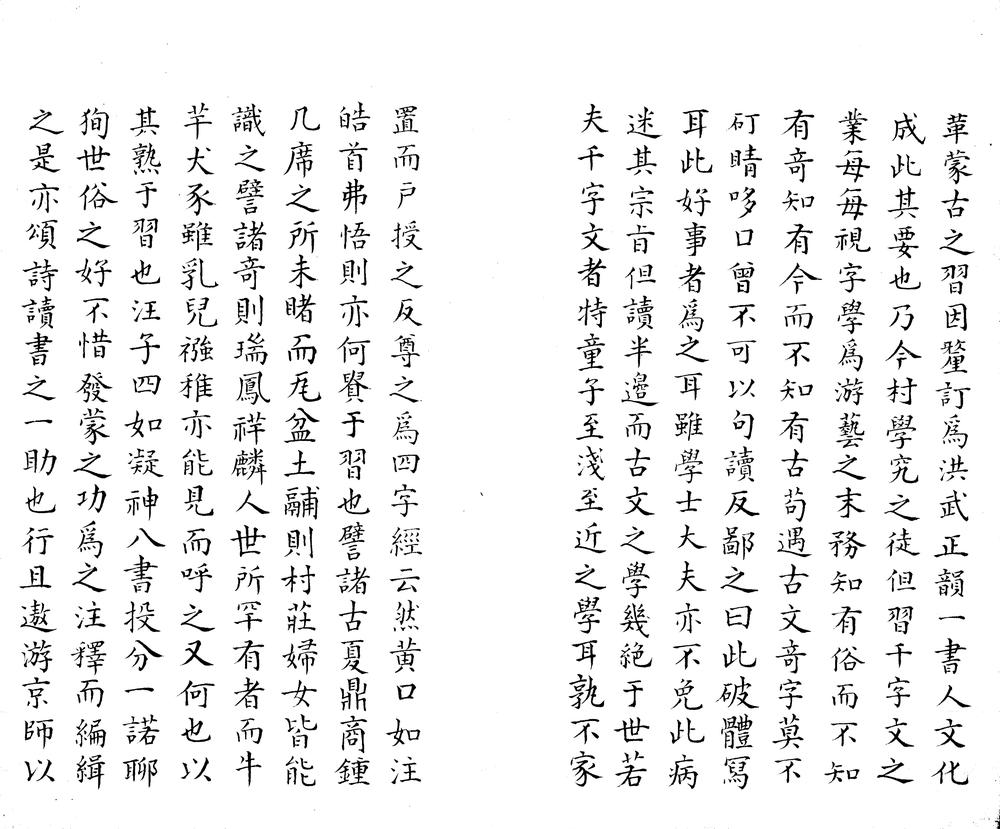 革蒙古之習因釐訂爲洪武正韻一書人文化
成此其要也乃今村學究之徒但習千字文之
業每每視字學爲游藝之末務知有俗而不知
有竒知有今而不知有古茍遇古文竒字莫不
矴睛哆口曾不可以句讀反鄙之曰此破體冩
耳此好事者爲之耳雖學士大夫亦不免此病
迷其宗㫖但讀半邉而古文之學幾絶于世若
夫千字文者特童子至淺至近之學耳孰不家
置而戸授之反尊之爲四字經云然黄口如注
皓首弗悟則亦何貴于習也譬諸古夏鼎商鍾
几席之所未睹而瓦盆土鬴則村莊婦女皆能
識之譬諸竒則瑞鳳祥麟人世所罕有者而牛
羊犬豕雖乳兒襁稚亦能見而呼之又何也以
其熟于習也汪子四如凝神八書投分一諾聊
狥世俗之好不惜發蒙之功爲之注釋而編緝
之是亦頌詩讀書之一助也行且遨游京師以